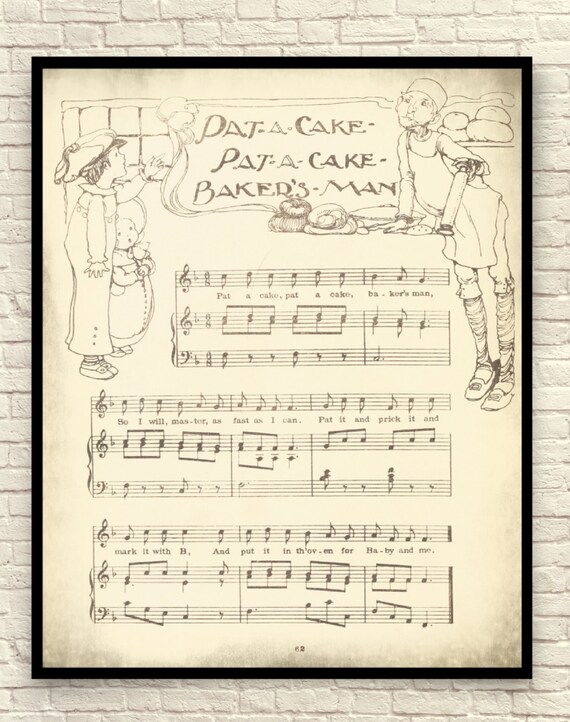 PAT-A-CAKE-
PAT-A-CAKE-
BAKER'S-MAN
Pat a cake, pat a cake, ba-ker's man,
So I will, mas-ter, as fast as I can. Pat it and prick it and
mark it with B, And put it in th'ov-en for Ba-by and me.
62